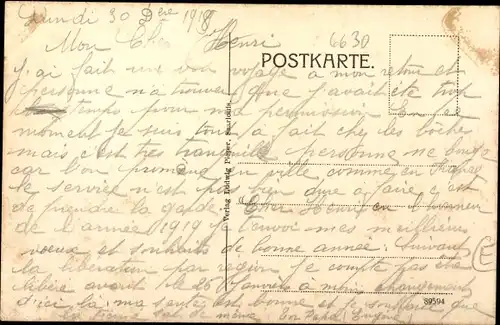 Lundi 30 Xbre 1918
6630
Mon Cher Henri
POSTKARTE.
J'ai fait un bon voyage à mon retour et
personne n'a trouvé que j'avais été trop
temps pour ma permission. En ce
moment je suis tout à fait chez les boches
mais c'est très tranquille personne ne bouge
car bon promène en ville comme en France
le service n'est pas bien dure à faire c'est
de prendre la garde. Cher Henri en l'honneur
de l'année 1919 je t'envoi mes meilleurs
voeux et souhaits de bonne année. Suivant
la libération par région je compte pas être
libéré avant le 26 Janvier à moins changement
d'ici là, ma santé est bonne et je souhaite que
la tienne soit de même. Ton
Verlag Hedwig Pieper, Saarlouis.
89594